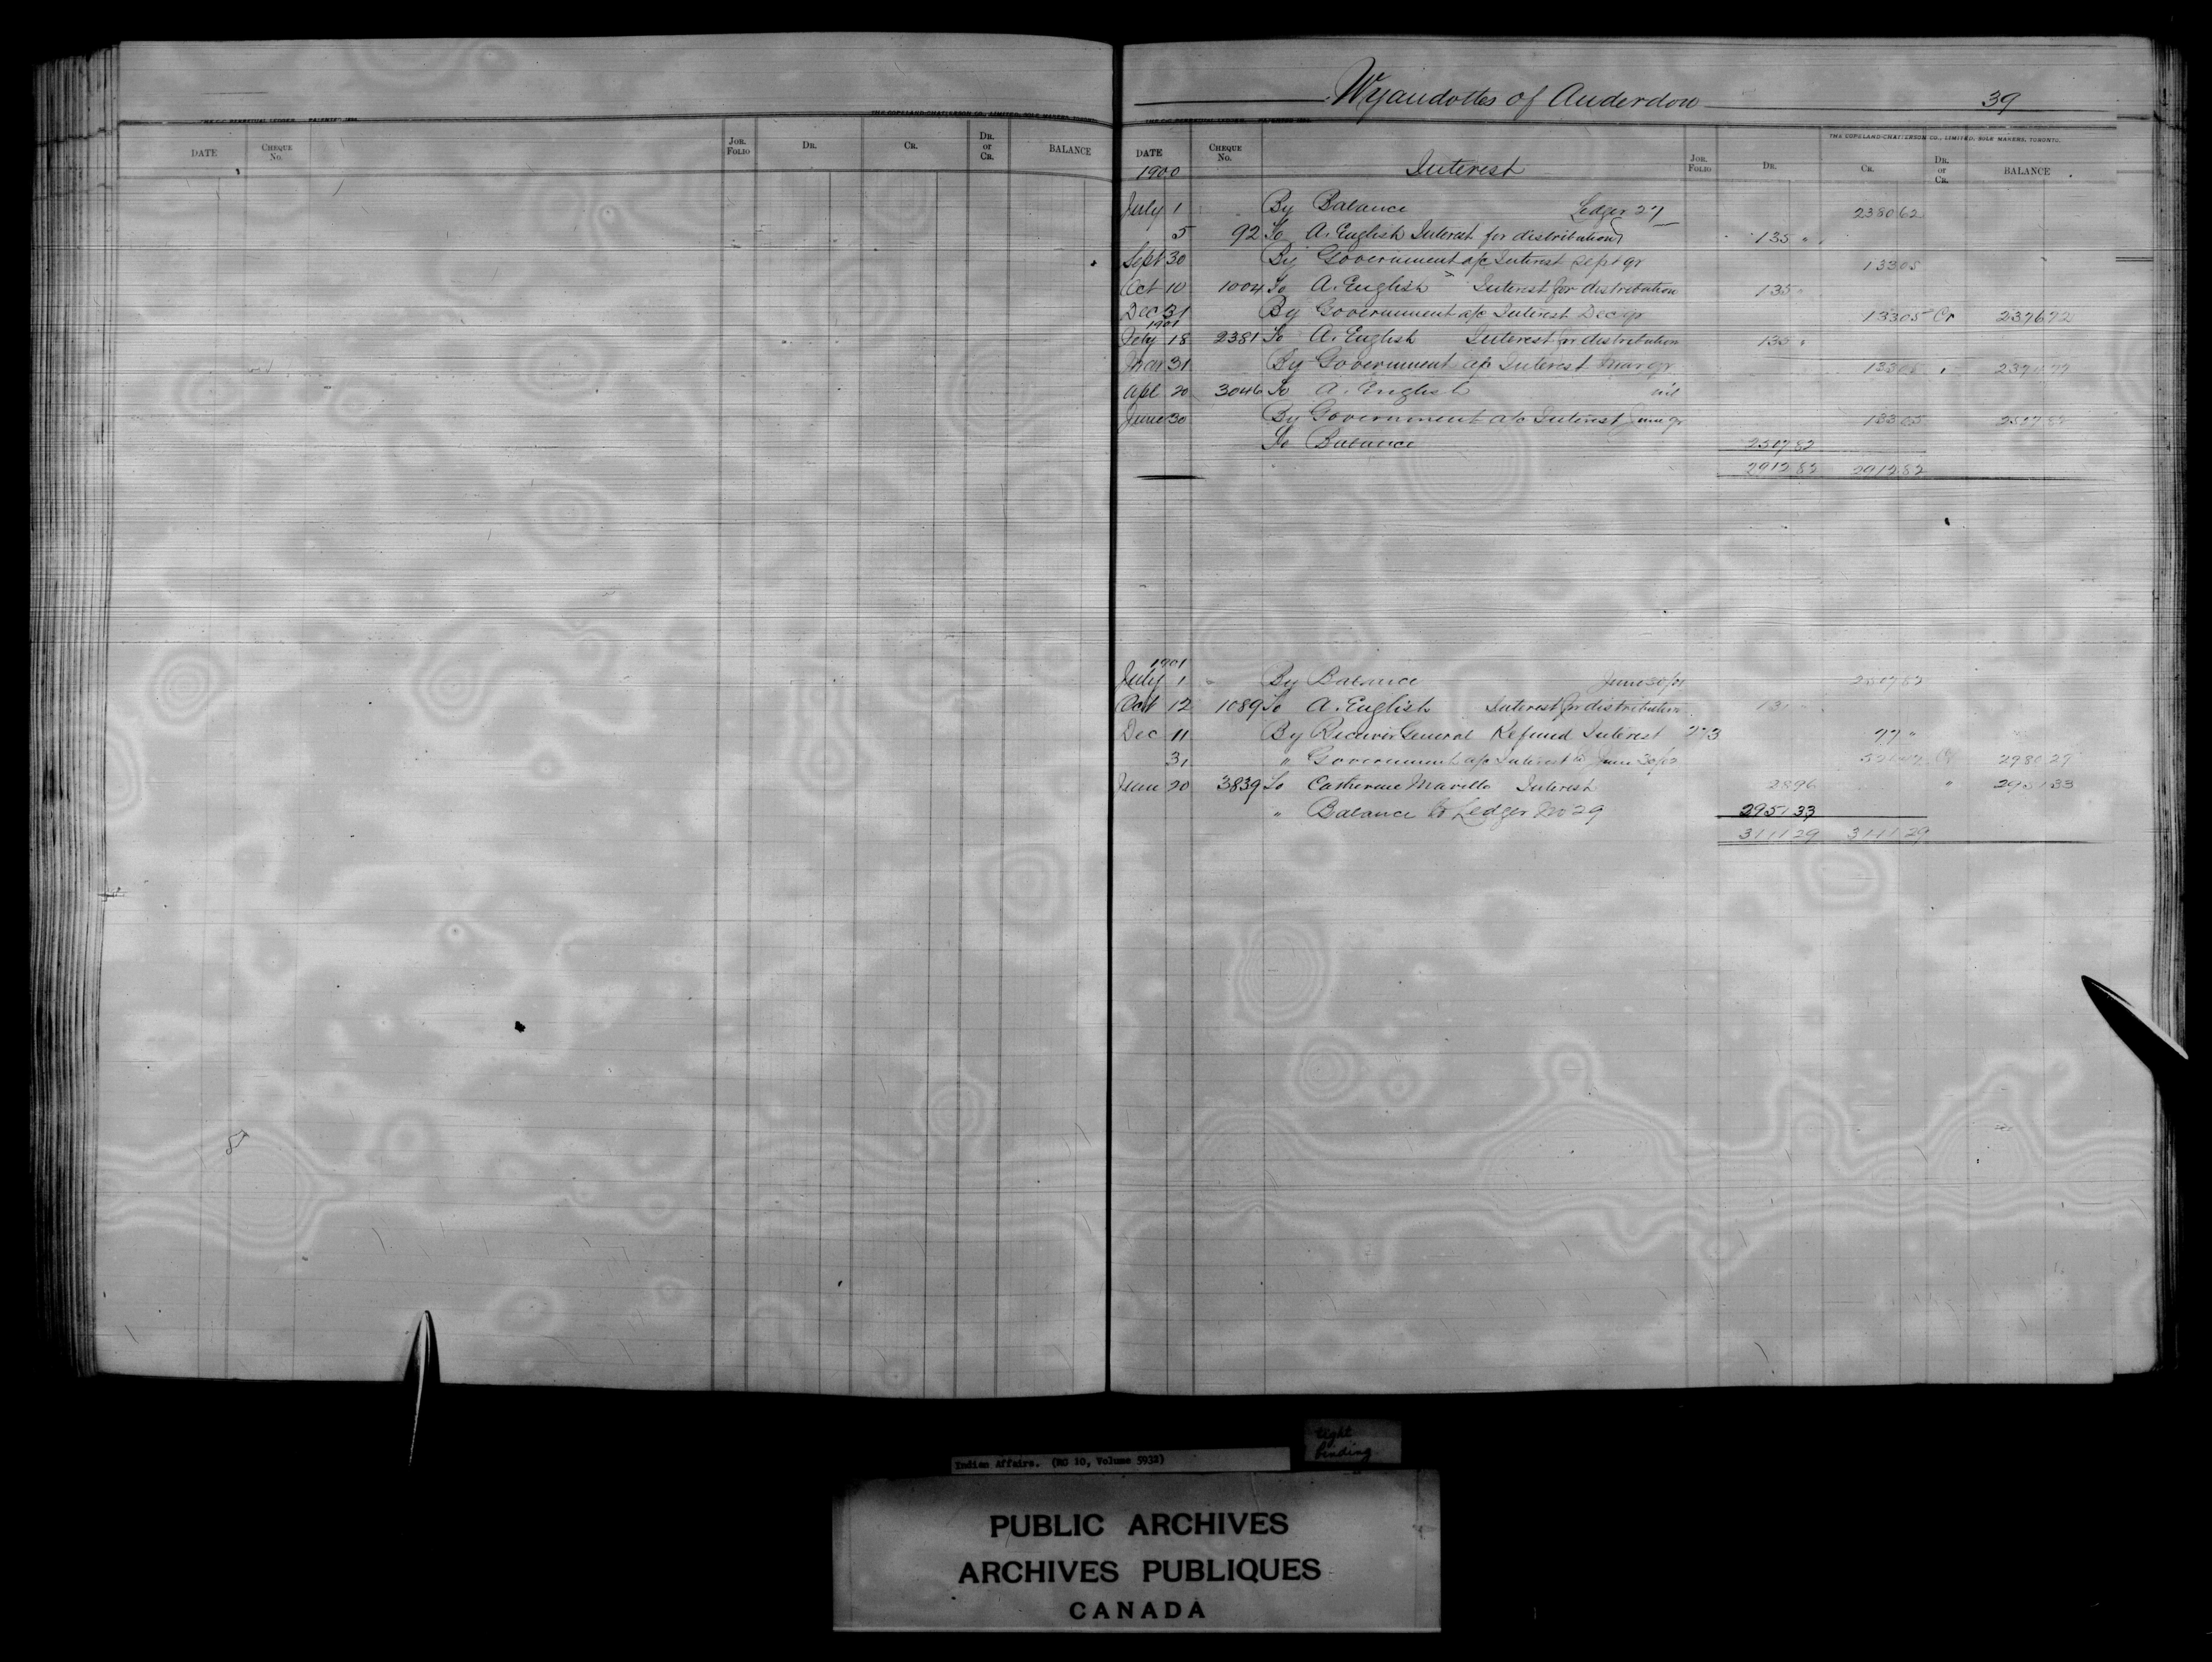 Wyandottes of Anderdon 39
THE C-C PERPETUAL LEDGER. PATENTED 1896. THE COPELAND-CHATTERSON CO., LIMITED, SOLE MAKERS, TORONTO.
DATE CHEQUE No. JOR. FOLIO DR. CR. DR. or CR. BALANCE
THE C-C PERPETUAL LEDGER. PATENTED 1896. THE COPELAND-CHATTERSON CO., LIMITED, SOLE MAKERS, TORONTO.
DATE CHEQUE No. JOR. FOLIO DR. CR. DR. or CR. BALANCE
1900 Interest
July 1 By Balance Ledger 27 2380 62
5 92 To A. English Interest for distribution 135 "
Sept 30 By Government a/c Interest Sept qr 133 05
Oct 10 1004 To A. English Interest for distribution 135 "
Dec 31 By Government a/c Interest Dec qr 133 05 Cr 2376 72
1901
Feby 18 2381 To A. English Interest for distribution 135 "
Mar 31 By Government a/c Interest Mar qr 133 05 " 2374 77
Apl 20 3046 To A. English nil
June 30 By Government a/c Interest June qr 133 05 2507 82
To Balance 2507 82
2912 82 2912 82
1901
July 1 By Balance June 30/01 2507 82
Oct 12 1089 To A. English Interest for distribution 131 "
Dec 11 By Receiver General Refund Interest 273 77 "
31 " Government a/c Interest to June 30/02 Cr 2980 29
June 20 3839 To Catherine Interest 28 96 " 2951 33
" Balance to Ledger No 29 2951 33
3111 29 3111 29
Indian Affairs. (RG 10, Volume 5932)
tight
binding
PUBLIC ARCHIVES
ARCHIVES PUBLIQUES
CANADA